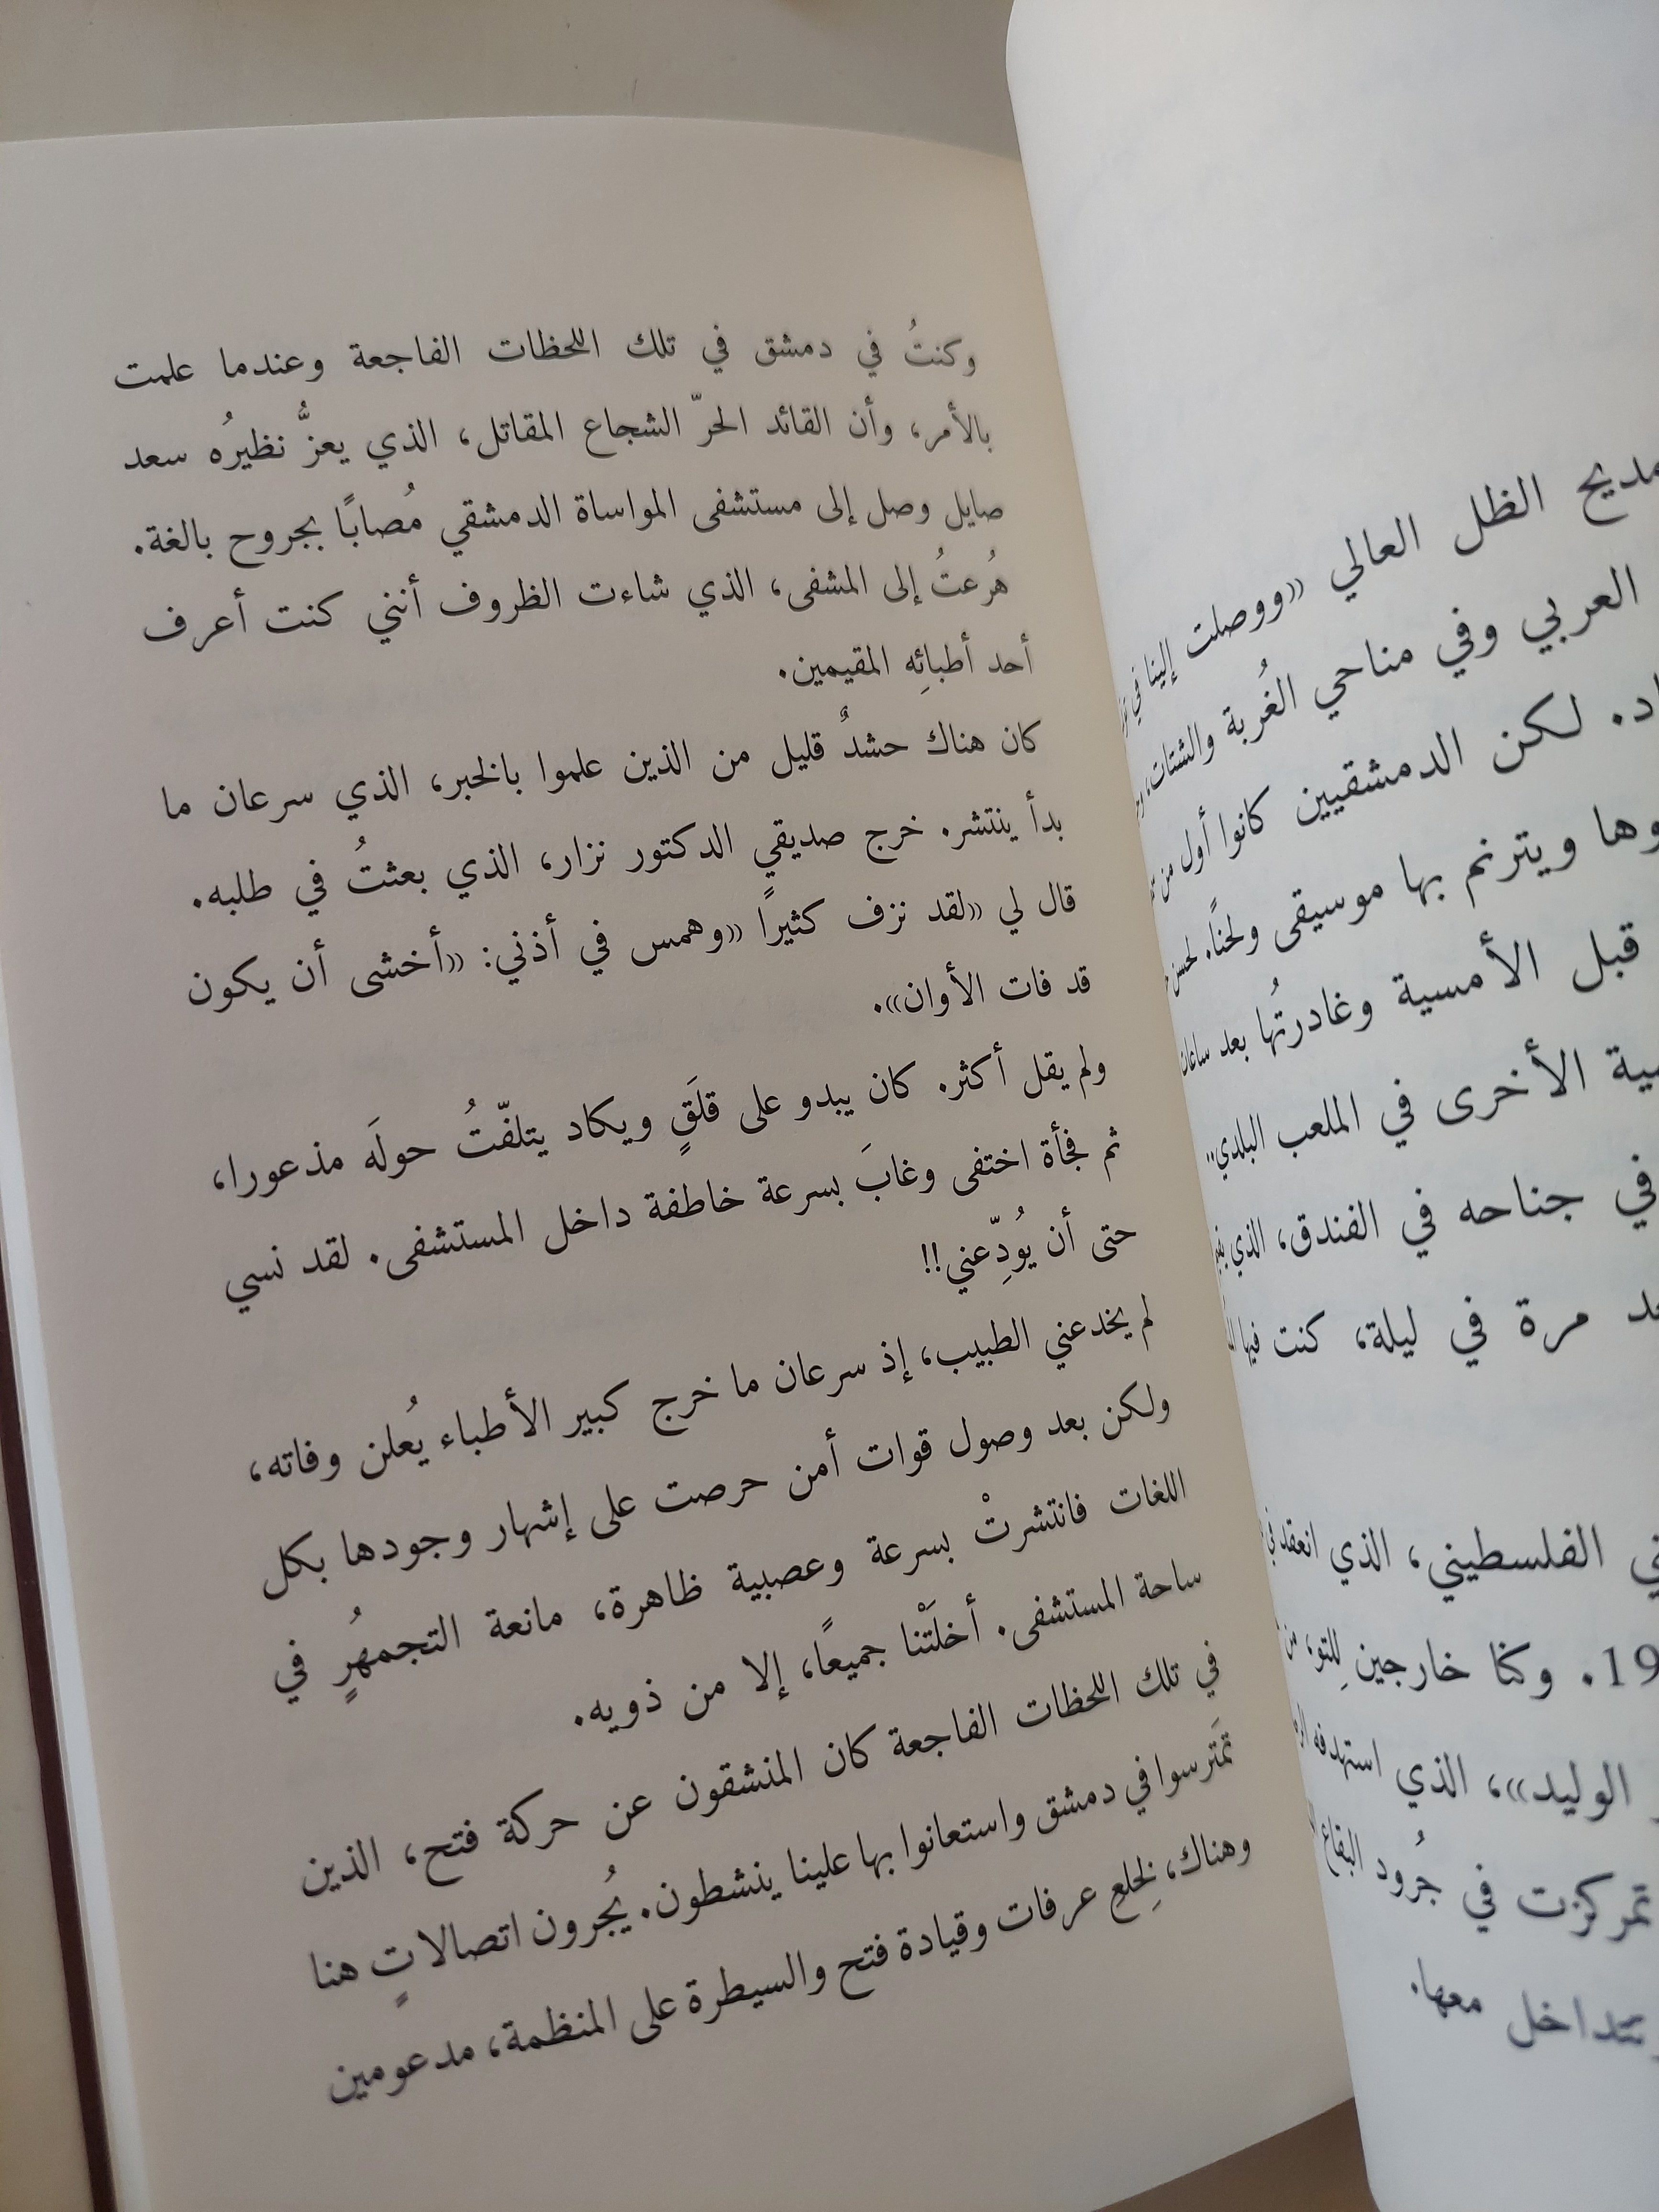 مديح الظل العالي «ووصلت إلينا في
العربي وفي مناحي الغُربة والشتات،
لكن الدمشقيين كانوا أول من
ويترنم بها موسيقى ولحنًا. لحسن
قبل الأمسية وغادرتُها بعد ساعات
الأخرى في الملعب البلدي"
في جناحه في الفندق، الذي
مرة في ليلة، كنت فيها
الفلسطيني، الذي انعقد في
19. وكنا خارجين لِلتو، من
الوليد»، الذي استهدفه
تمركزت في جُرود البقاع
تتداخل معها.
وكنتُ في دمشق في تلك اللحظات الفاجعة وعندما علمت
بالأمر، وأن القائد الحرّ الشجاع المقاتل، الذي يعزُّ نظيرُه سعد
صايل وصل إلى مستشفى المواساة الدمشقي مُصابًا بجروح بالغة.
هُرعتُ إلى المشفى، الذي شاءت الظروف أنني كنت أعرف
أحد أطبائِه المقيمين.
كان هناك حشدٌ قليل من الذين علموا بالخبر، الذي سرعان ما
بدأ ينتشر. خرج صديقي الدكتور نزار، الذي بعثتُ في طلبه.
قال لي «لقد نزف كثيرًا «وهمس في أذني: «أخشى أن يكون
قد فات الأوان».
ولم يقل أكثر. كان يبدو على قلَقٍ ويكاد يتلفّتُ حولَه مذعورا،
ثم فجأة اختفى وغابَ بسرعة خاطفة داخل المستشفى. لقد نسي
حتى أن يُودِّعني!!
لم يخدعني الطبيب، إذ سرعان ما خرج كبير الأطباء يُعلن وفاته،
ولكن بعد وصول قوات أمن حرصت على إشهار وجودها بكل
اللغات فانتشرتْ بسرعة وعصبية ظاهرة، مانعة التجمهُرِ في
ساحة المستشفى. أخلَتْنا جميعًا، إلا من ذويه.
في تلك اللحظات الفاجعة كان المنشقون عن حركة فتح، الذين
تمَترسوا في دمشق واستعانوا بها علينا ينشطون. يُجرون اتصالاتٍ هنا
وهناك، لِخلعِ عرفات وقيادة فتح والسيطرة على المنظمة، مدعومين